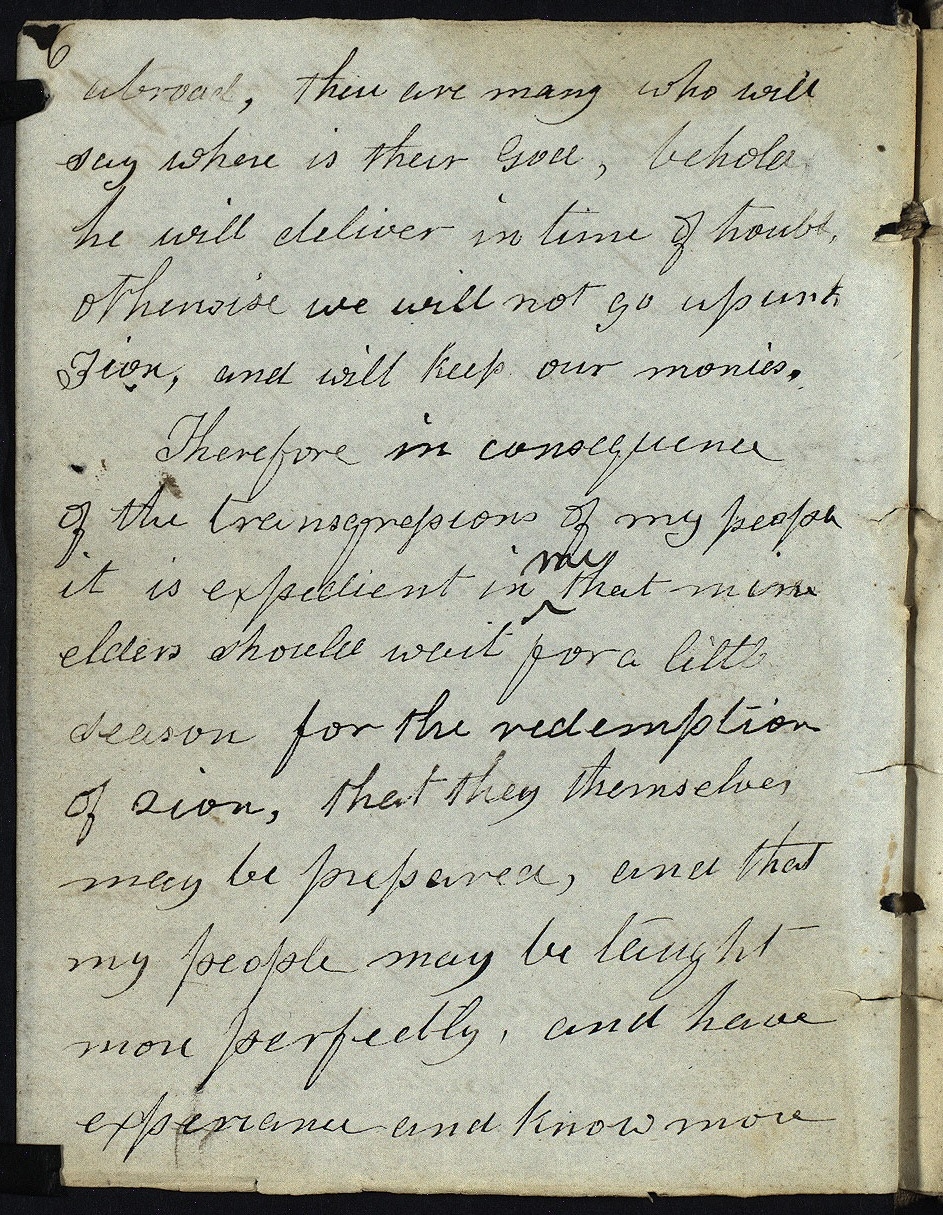 6
abroad, there are many who will
say where is their God, behold
he will deliver in time of trouble,
otherwise we will not go up unto
Zion, and will keep our monies.
Therefore in consequence
of the transgressions of my people
it is expedient in me that mine
elders should wait for a little
season for the redemption
of zion, that they themselves
may be prepared, and that
my people may be taught
more perfectly, and have
experiance and know more